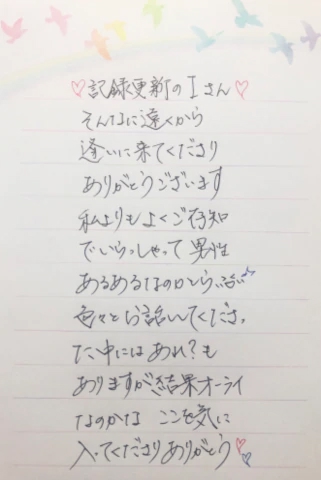 ♡記録更新のIさん♡
そんなに遠くから
逢いに来てくださり
ありがとうございます
私よりもよくご存知
でいらっしゃって男性
あるあるなのかしら
色々とお話ししてくださっ
た中にはあれ?も
ありますが結果オーライ
なのかな ここを気に
入ってくださりありがとう♡♡